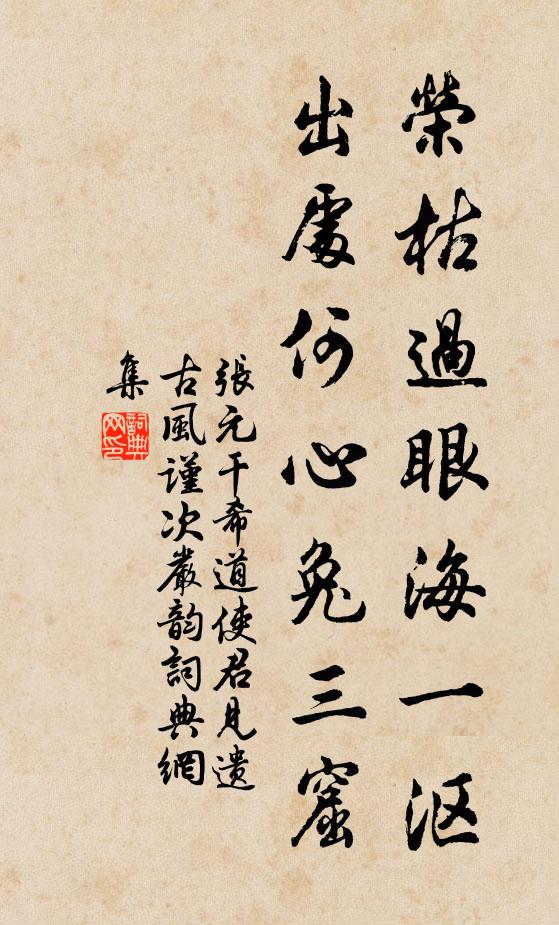 榮枯過眼海一沤
出處何心兔三窟
張元干希道使君見遺
古風謹次嚴韵詞典網
集
詞典
网印